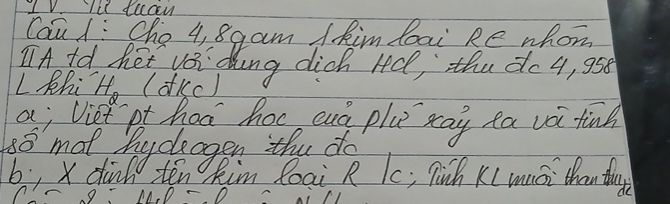 IV. Tự luận
Câu 1: Cho 4,8gam 1 kim loại R E nhóm
IIA td hết với dung dịch HCl, thu đc 4,958
L khí H2 (đkc)
a, Viết pt hoá học của pứ xảy ra và tính
số mol hydrogen thu đc
b, X định tên kim loại R /c, Tính KL muối than thu đc